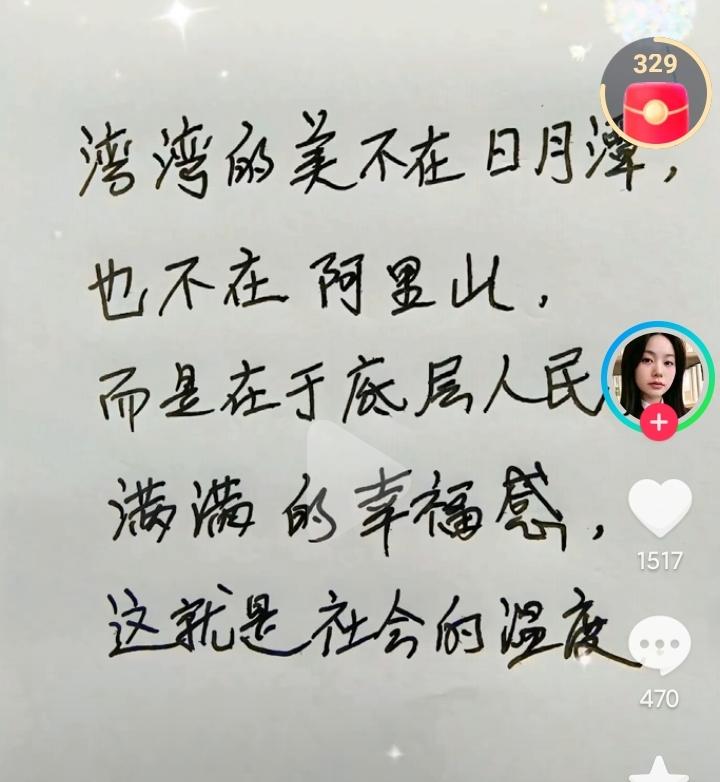 329
湾湾的美不在日月潭，
也不在阿里山，
而是在于底层人民
满满的幸福感，
1517
这就是社会的温度
470